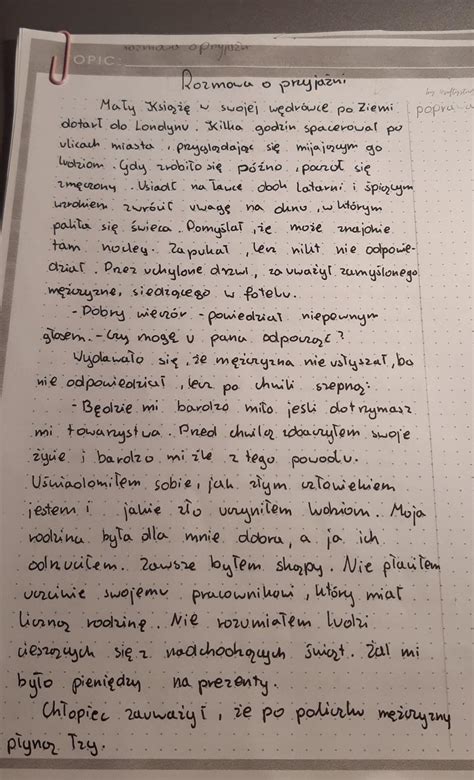 rozmowa o przyjaźni
OPIC:
Rozmowa o przyjaźni
Mały Książę w swojej wędrówce po Ziemi
dotarł do Londynu. Kilka godzin spacerował po
ulicach miasta, przyglądając się mijającym go
ludziom. Gdy zrobiło się późno, poczuł się
zmęczony. Usiadł na ławce obok latarni i śpiącym
wzrokiem zwrócił uwagę na okno, w którym
paliła się świeca. Pomyślał, że może znajdzie
tam nocleg. Zapukał, lecz nikt nie odpowie-
dział. Przez uchylone drzwi, zauważył zamyślonego
mężczyznę, siedzącego w fotelu.
- Dobry wieczór - powiedział niepewnym
głosem. - Czy mogę u pana odpocząć?
Wydawało się, że mężczyzna nie usłyszał, bo
nie odpowiedział, lecz po chwili szepnął:
- Będzie mi bardzo miło jeśli dotrzymasz
mi towarzystwa. Przed chwilą zobaczyłem swoje
życie i bardzo mi źle z tego powodu.
Uświadomiłem sobie, jak złym człowiekiem
jestem i jakie zło uczyniłem ludziom. Moja
rodzina była dla mnie dobra, a ja ich
odrzuciłem. Zawsze byłem skąpy. Nie płaciłem
uczciwie swojemu pracownikowi, który miał
liczną rodzinę. Nie rozumiałem ludzi
cieszących się z nadchodzących świąt. Żal mi
było pieniędzy na prezenty.
Chłopiec zauważył, że po policzku mężczyzny
płyną łzy.